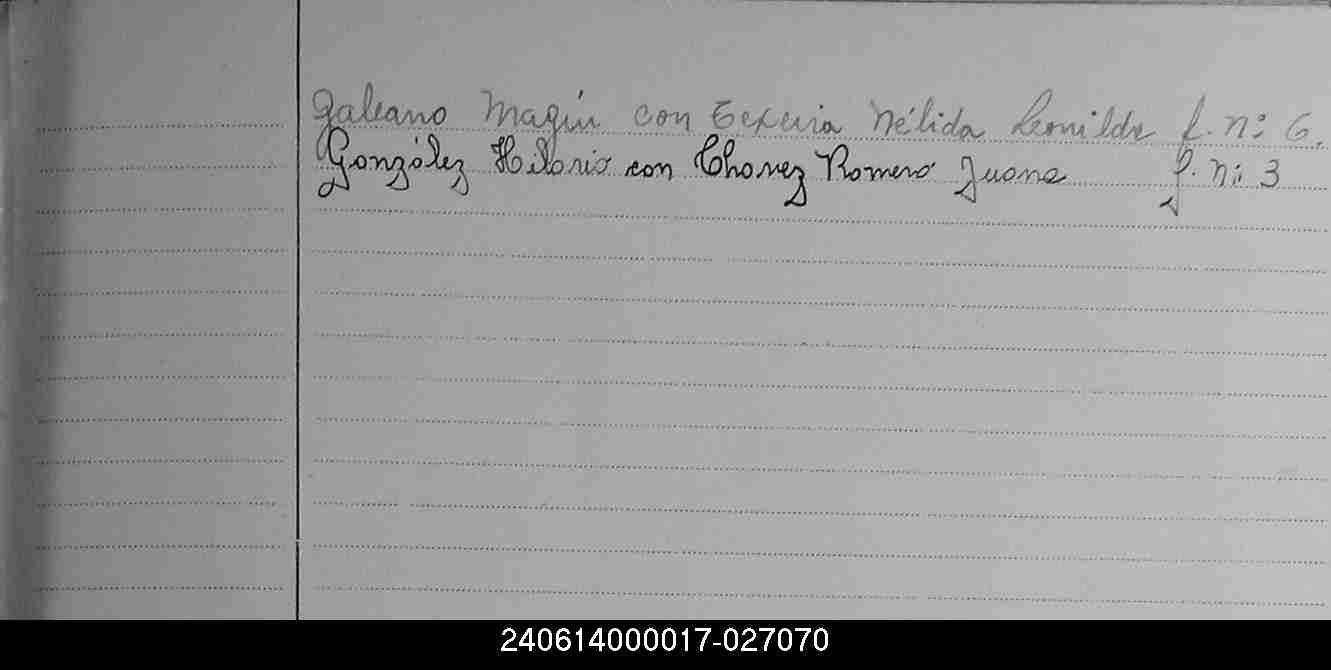 Galeano Magín con Texeira Nélida Leonilda f. n: 6.
González Hilario con Chavez Romero Juana f. n: 3
240614000017-027070